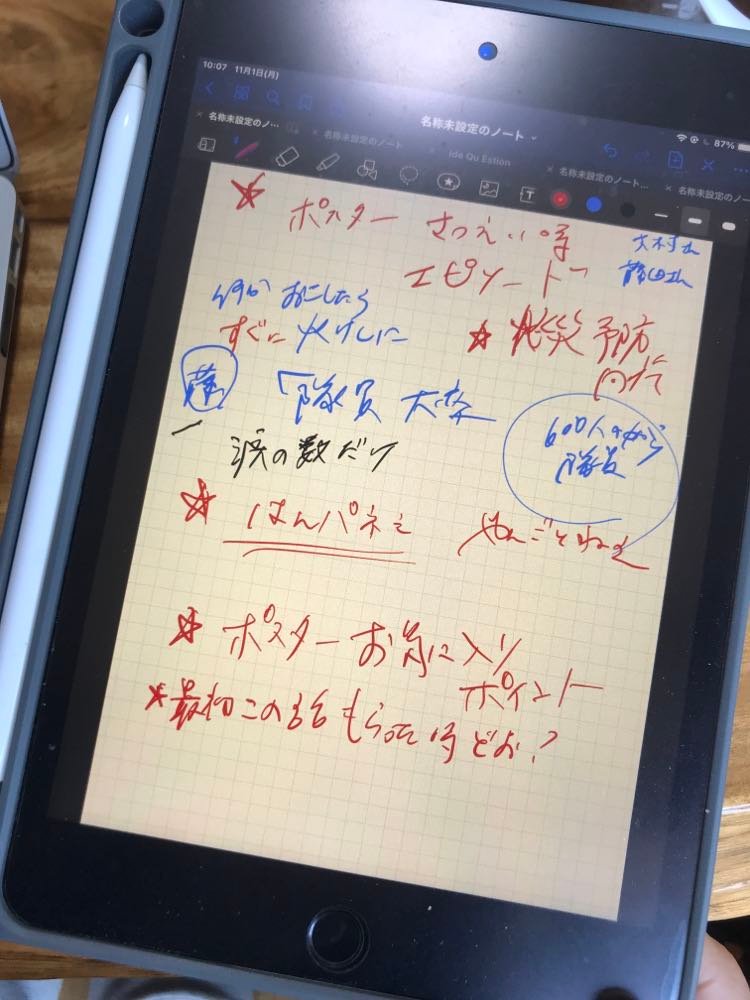 10:07 11月1日(月)
87%
名称未設定のノート
名称未設定のノ…
名称未設定のノート
ide Qu Estion
名称未設定のノート…
名称未設定のノ…
ポスター さつえい時
エピソード
大村さん
藤田さん
何か おこしたら
すぐに 火けしに
火災予防
「隊員 大卒
600人の中から
隊員
涙の数だけ
はんパネぇ
ポスターお気に入り
ポイント
最初この話もらった時どお?